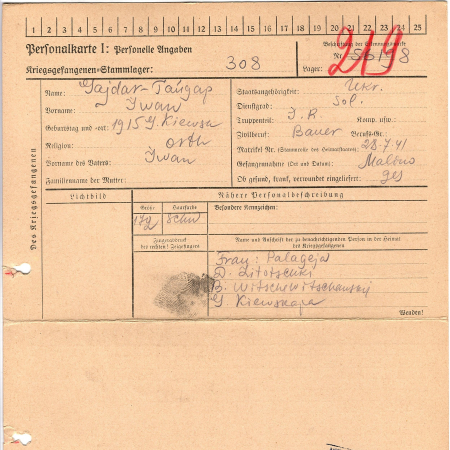 1 2 3 4 5 6 7 8 9 10 11 12 13 14 15 16 17 18 19 20 21 22 23 24 25
Personalkarte I: Personelle Angaben
Beschriftung der Erkennungsmarke
Nr. 8
219
Kriegsgefangenen-Stammlager: 308
Lager:
Des Kriegsgefangenen
Name: Gajdar-Гайдар
Vorname: Iwan
Geburtstag und -ort: 1915 G. Kiewsk
Religion: orth
Vorname des Vaters: Iwan
Familienname der Mutter:
Staatsangehörigkeit: Ukr.
Dienstgrad: Sol.
Truppenteil: I.R. Komp. usw.:
Zivilberuf: Bauer Berufs-Gr.:
Matrikel Nr. (Stammrolle des Heimatstaates):
Gefangennahme (Ort und Datum): 28.7.41 Malino
Ob gesund, krank, verwundet eingeliefert: ges
Lichtbild
Nähere Personalbeschreibung
Größe
Haarfarbe
Besondere Kennzeichen:
172 Schw
Fingerabdruck
des rechten! Zeigefingers
Name und Anschrift der zu benachrichtigenden Person in der Heimat
des Kriegsgefangenen
Frau: Palageja
D. Litotschki
G. Kiewskaja
Wenden!